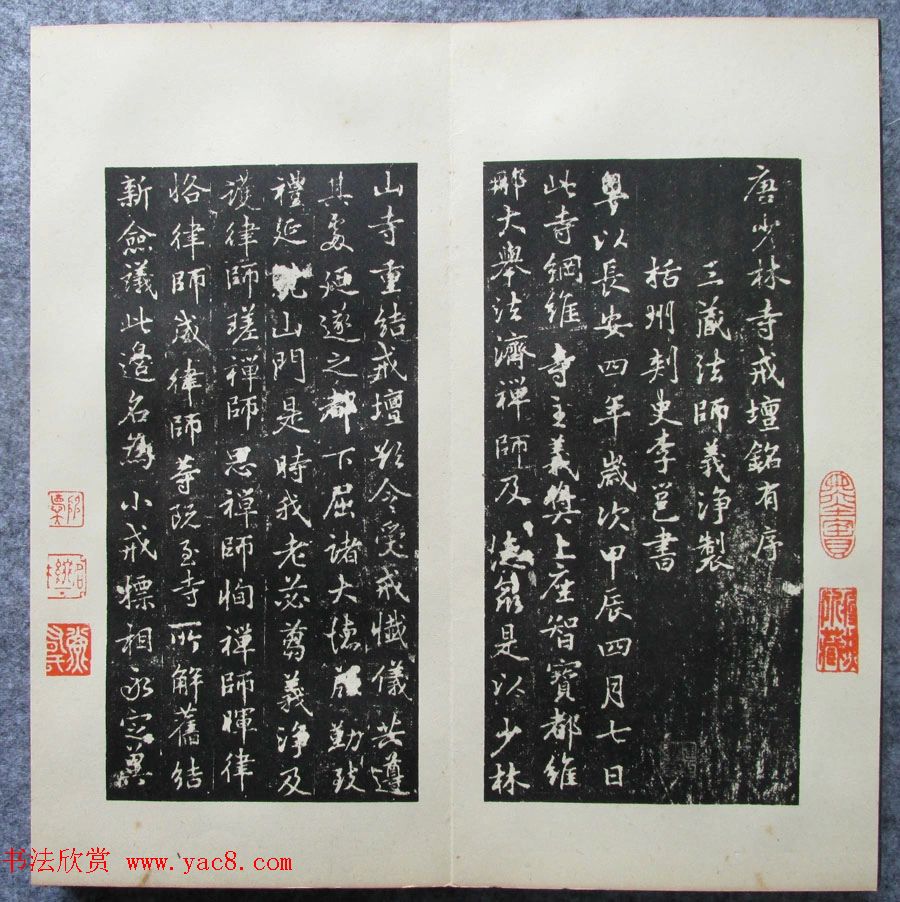 唐少林寺戒壇銘有序
三藏法師義浄製
括州刺史李邕書
粤以長安四年歲次甲辰四月七日
此寺綱維寺主義奬上座智寶都維
那大舉法濟禪師及德衆是以少林
山寺重結戒壇欲令受戒懺儀共遵
其處遞邀之都下屈諸大德慇勤致
禮延就山門是時我老苾蒭義浄及
護律師瑳禪師思禪師恂禪師暉律
恪律師威律師等既至寺所解舊結
新僉議此邊名為小戒標相永定異
书法欣赏 www.yac8.com